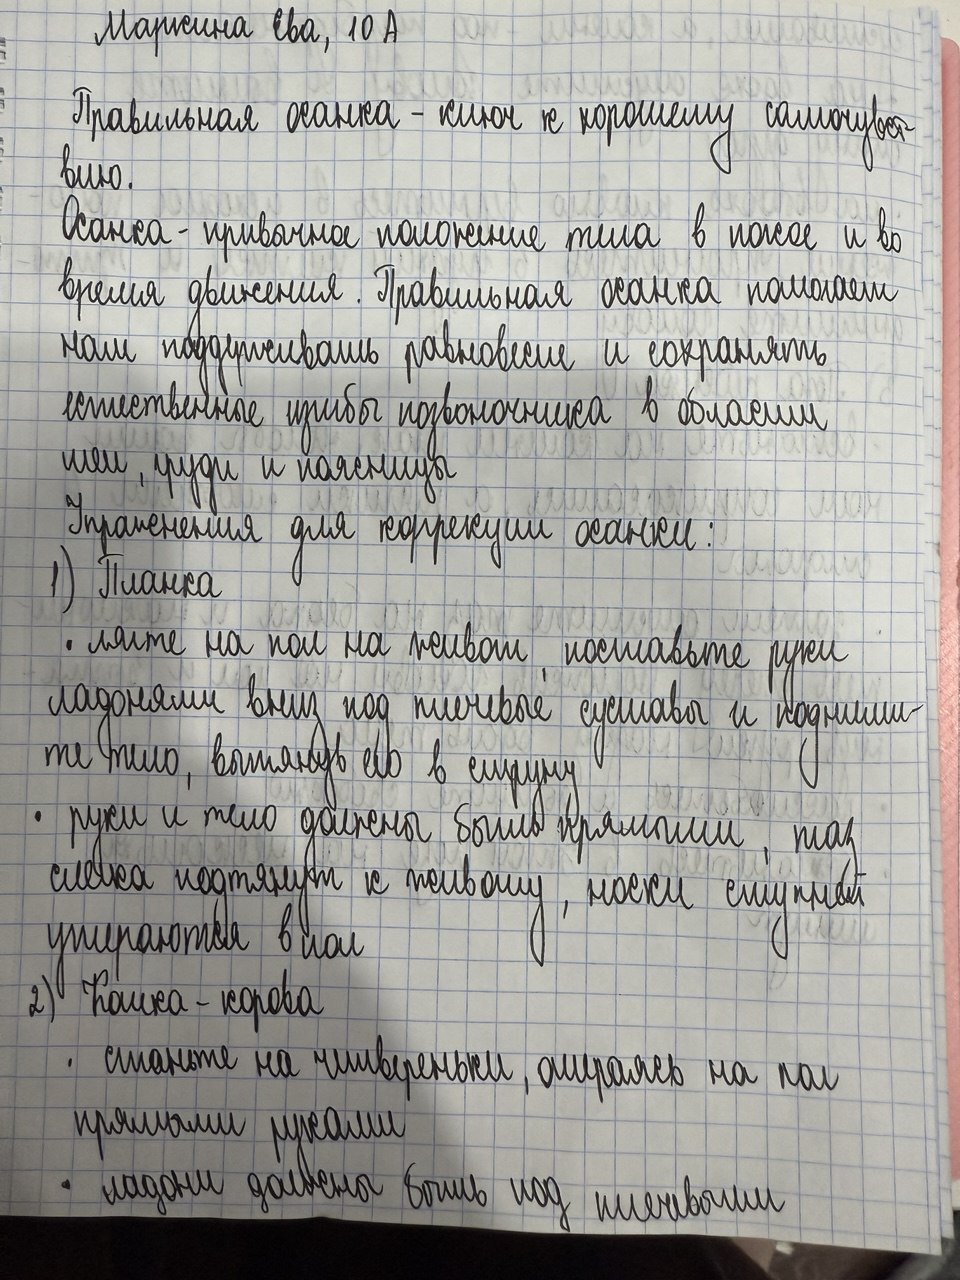 Маркина Ева, 10 А
Правильная осанка - ключ к хорошему самочувст-
вию.
Осанка - привычное положение тела в покое и во
время движения. Правильная осанка помогает
нам поддерживать равновесие и сохранять
естественные изгибы позвоночника в области
шеи, груди и поясницы
Упражнения для коррекции осанки:
1) Планка
• лягте на пол на живот, поставьте руки
ладонями вниз под плечевые суставы и подними-
те тело, вытянув его в струну
• руки и тело должны быть прямыми, таз
слегка подтянут к животу, носки ступней
упираются в пол
2) Кошка-корова
• станьте на четвереньки, опираясь на пол
прямыми руками
• ладони должны быть под плечевыми